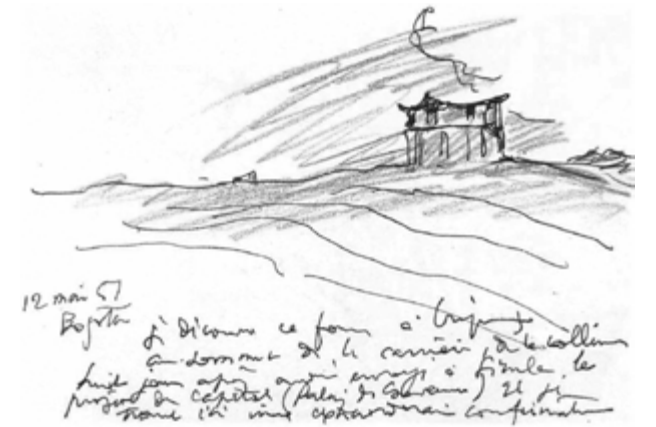 12 mai 51
Bogota
je découvre ce jour à
au-dessus de la carrière de la colline
huit jours après avoir envoyé à Simla le
projet du Capitol (Palais du Gouverneur) et je
trouve ici une extraordinaire confirmation